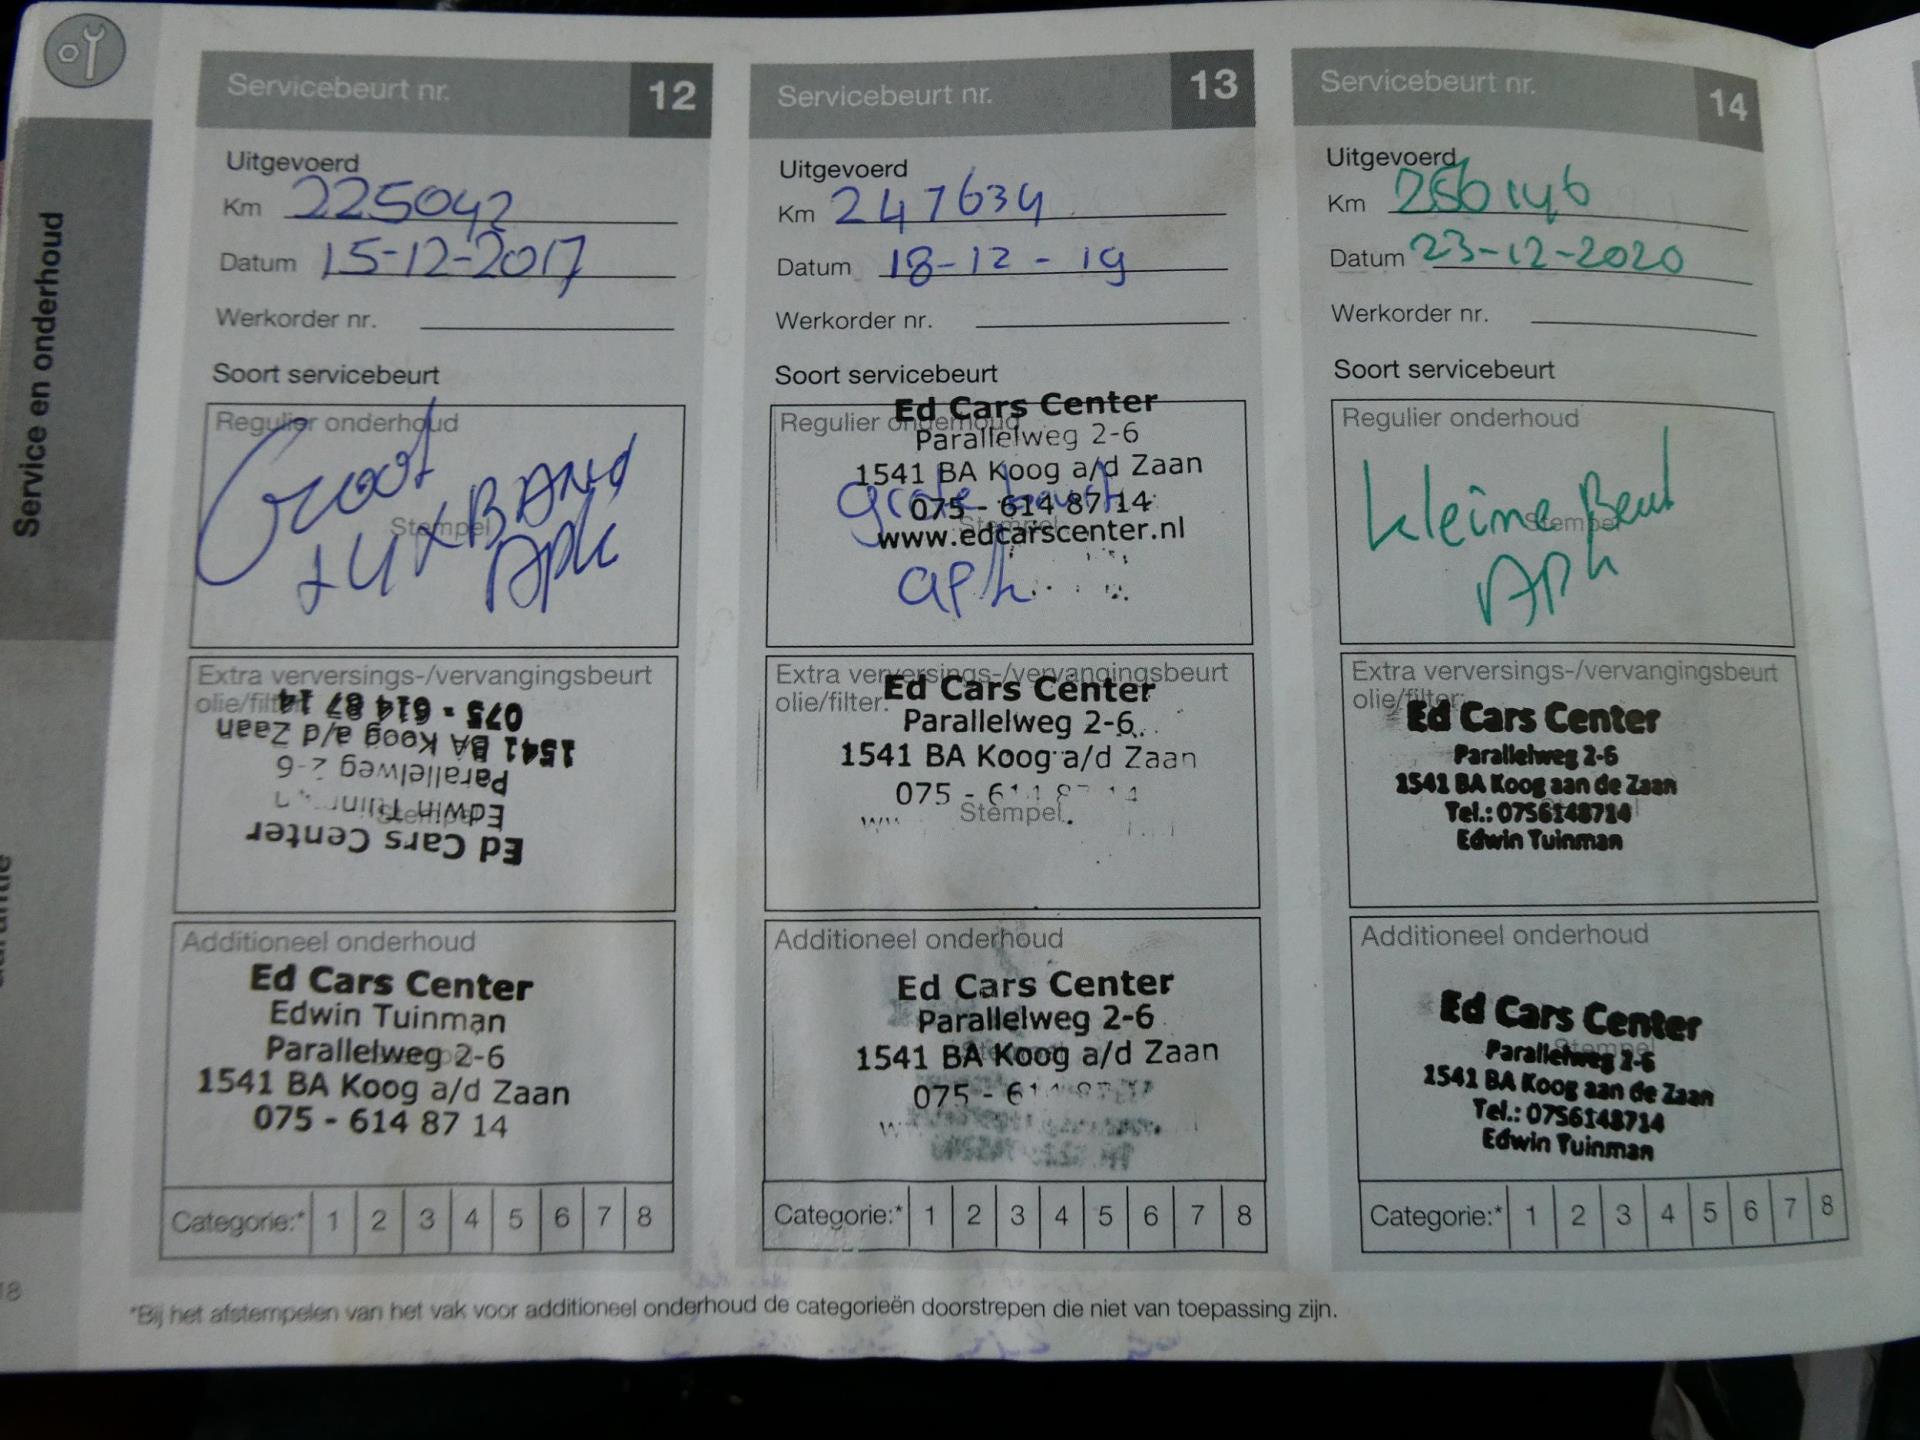 Service en onderhoud
18
Servicebeurt nr. 12
Uitgevoerd
Km 225042
Datum 15-12-2017
Werkorder nr.
Soort servicebeurt
Regulier onderhoud
Groot
Stempel
+ 4 x BAND
APK
Extra verversings-/vervangingsbeurt
olie/filter:
Stempel
Ed Cars Center
Edwin Tuinman
Parallelweg 2-6
1541 BA Koog a/d Zaan
075 - 614 87 14
Additioneel onderhoud
Ed Cars Center
Edwin Tuinman
Parallelweg 2-6
1541 BA Koog a/d Zaan
075 - 614 87 14
Categorie:* 1 2 3 4 5 6 7 8
Servicebeurt nr. 13
Uitgevoerd
Km 247634
Datum 18-12-19
Werkorder nr.
Soort servicebeurt
Regulier onderhoud
Ed Cars Center
Parallelweg 2-6
1541 BA Koog a/d Zaan
075 - 614 87 14
www.edcarscenter.nl
Stempel
grote beurt
apk
Extra verversings-/vervangingsbeurt
olie/filter:
Ed Cars Center
Parallelweg 2-6
1541 BA Koog a/d Zaan
075 - 614 87 14
Stempel
Additioneel onderhoud
Ed Cars Center
Parallelweg 2-6
1541 BA Koog a/d Zaan
075 - 6
Categorie:* 1 2 3 4 5 6 7 8
Servicebeurt nr. 14
Uitgevoerd
Km 256146
Datum 23-12-2020
Werkorder nr.
Soort servicebeurt
Regulier onderhoud
Kleine Beurt
Stempel
APK
Extra verversings-/vervangingsbeurt
olie/filter:
Ed Cars Center
Parallelweg 2-6
1541 BA Koog aan de Zaan
Tel.: 0756148714
Edwin Tuinman
Additioneel onderhoud
Ed Cars Center
Stempel
Parallelweg 2-6
1541 BA Koog aan de Zaan
Tel.: 0756148714
Edwin Tuinman
Categorie:* 1 2 3 4 5 6 7 8
*Bij het afstempelen van het vak voor additioneel onderhoud de categorieën doorstrepen die niet van toepassing zijn.